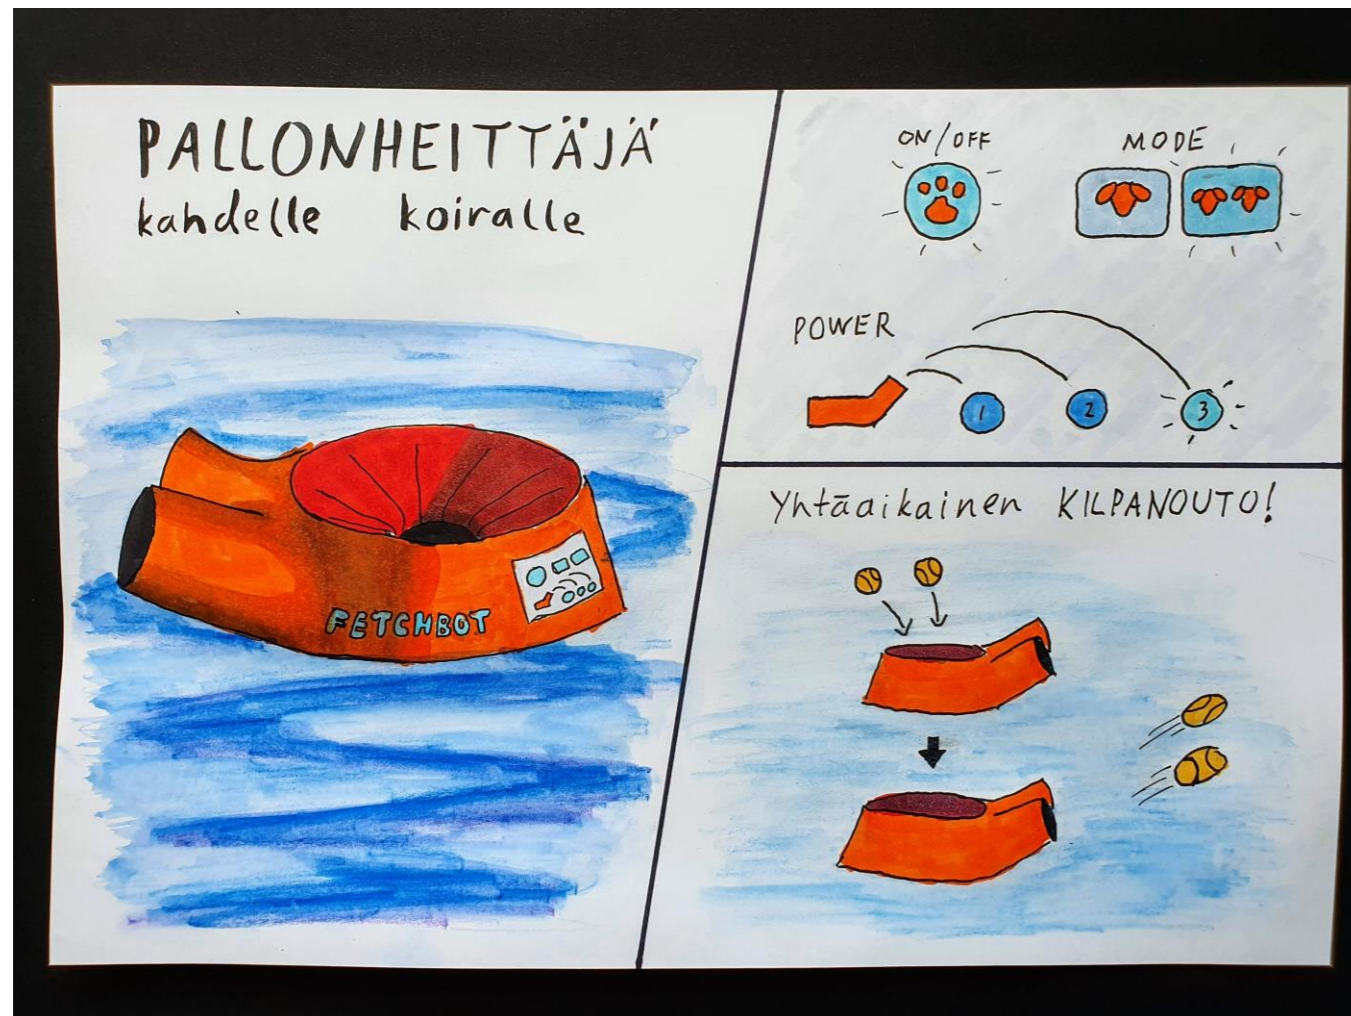 PALLONHEITTÄJÄ
kahdelle koiralle
FETCHBOT
ON/OFF
MODE
POWER
1
2
3
Yhtäaikainen KILPANOUTO!